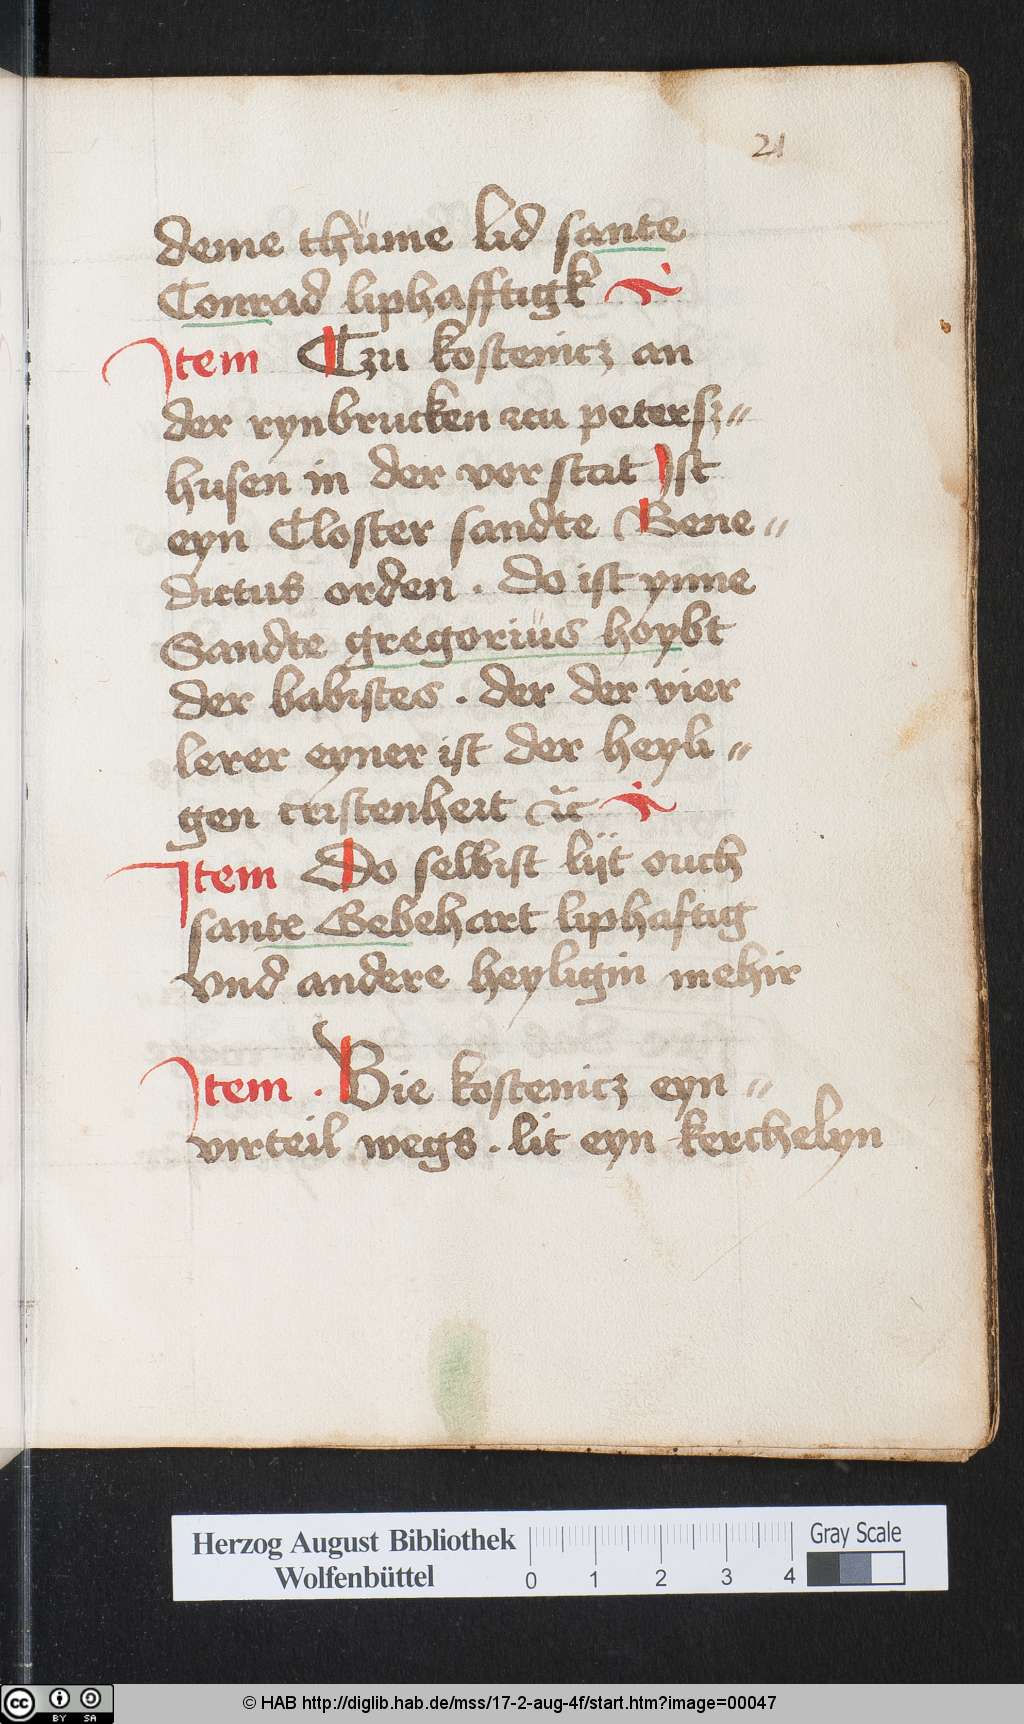 21
deme thüme lid sante
Conrad liphafftigk
Item Czu kostenicz an
der rynbrucken zcu petersz„
husen in der vorstat Ist
eyn Closter sandte Bene„
dictus orden . Do ist ynne
Sandte gregoriüs hoybt
der babistes . der der vier
lerer eyner ist der heyli„
gen cristenheit
Item Do selbist lijt ouch
sante Gebehart liphaftig
vnd andere heyligin mehir
Item . Bie kostenicz eyn„
virteil wegs . lit eyn kerchelyn
Herzog August Bibliothek
Wolfenbüttel
0 1 2 3 4
Gray Scale
cc BY SA
© HAB http://diglib.hab.de/mss/17-2-aug-4f/start.htm?image=00047